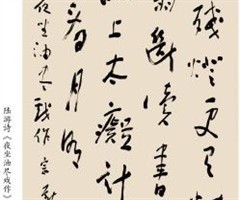 残灯更
断读书
上太痴计
看月明
夜坐油尽戏作 宗
陆游诗《夜坐油尽戏作》